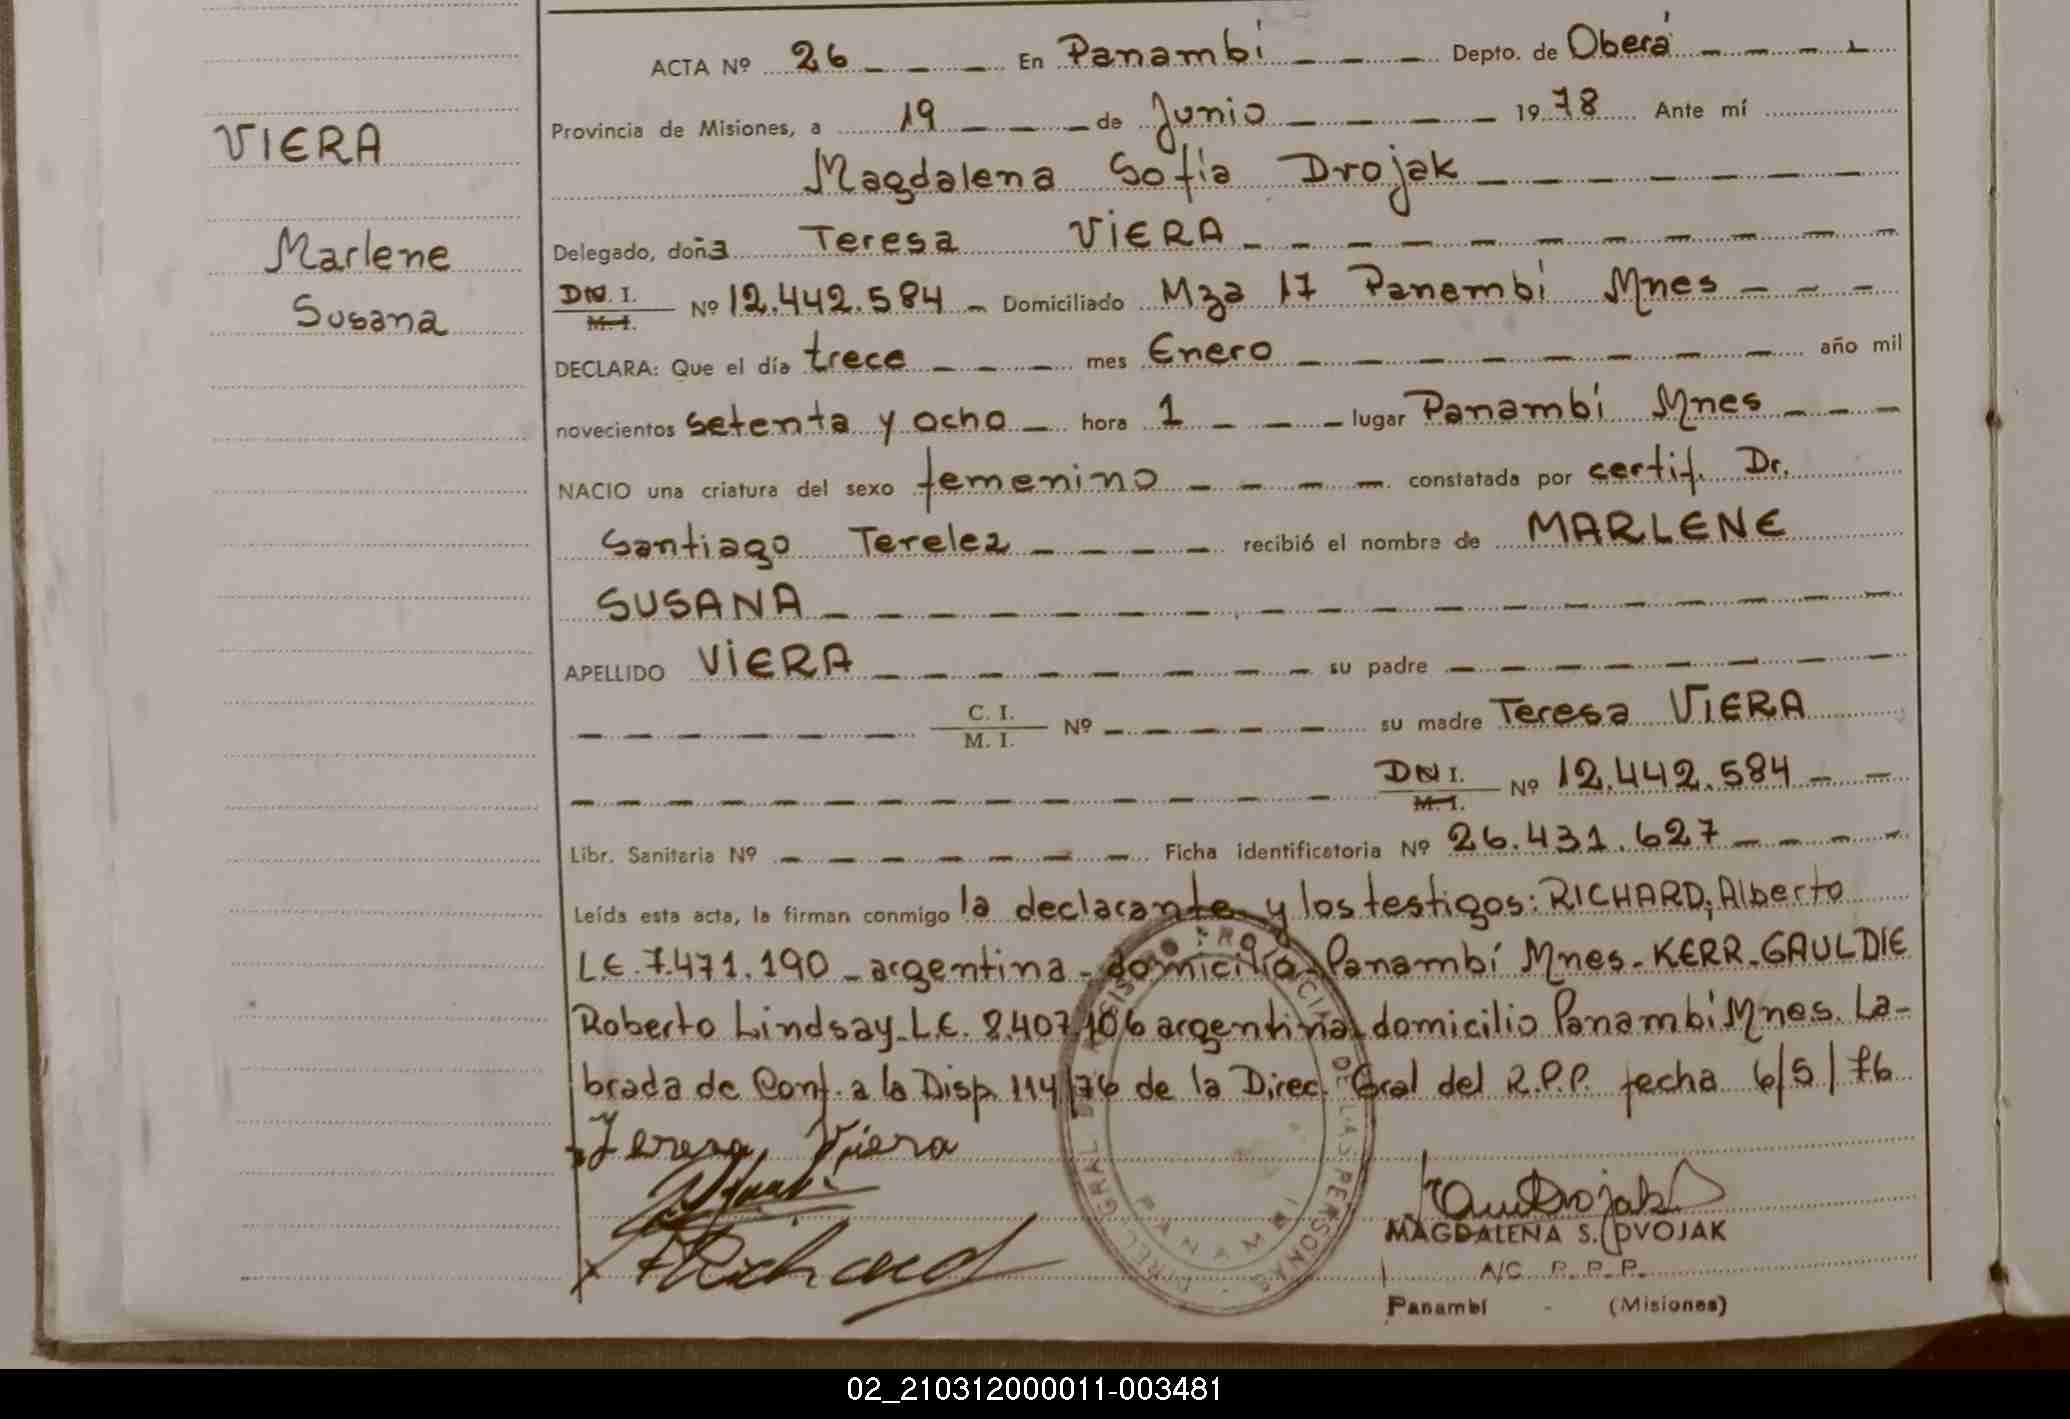 ACTA Nº 26 En Panambí Depto. de Oberá
Provincia de Misiones, a 19 de Junio 1978 Ante mí
VIERA
Magdalena Sofia Dvojak
Delegado, doña Teresa VIERA
Marlene
DN.I. M.I. Nº 12.442.584 Domiciliado Mza 17 Panambí Mnes
Susana
DECLARA: Que el día trece mes Enero año mil
novecientos setenta y ocho hora 1 lugar Panambí Mnes
NACIO una criatura del sexo femenino constatada por certif. Dr.
Santiago Terelez recibió el nombre de MARLENE
SUSANA
APELLIDO VIERA su padre
C. I. M. I. Nº su madre Teresa VIERA
DNI. M.I. Nº 12.442.584
Libr. Sanitaria Nº Ficha identificatoria Nº 26.431.627
Leída esta acta, la firman conmigo la declarante y los testigos: RICHARD, Alberto
L.E. 7.471.190 - argentina - domicilio - Panambí Mnes - KERR-GAULDIE
Roberto Lindsay - L.E. 8.407.106 argentina - domicilio Panambí Mnes. La-
brada de Conf. a la Disp. 114/76 de la Direc. Gral del R.P.P. fecha 6/5/76
Teresa Viera
Richard
DIREC. GRAL DEL REGISTRO PROVINCIAL DE LAS PERSONAS
PANAMBI
Dvojak
MAGDALENA S. DVOJAK
A/C R.P.P.
Panambí - (Misiones)
02_210312000011-003481